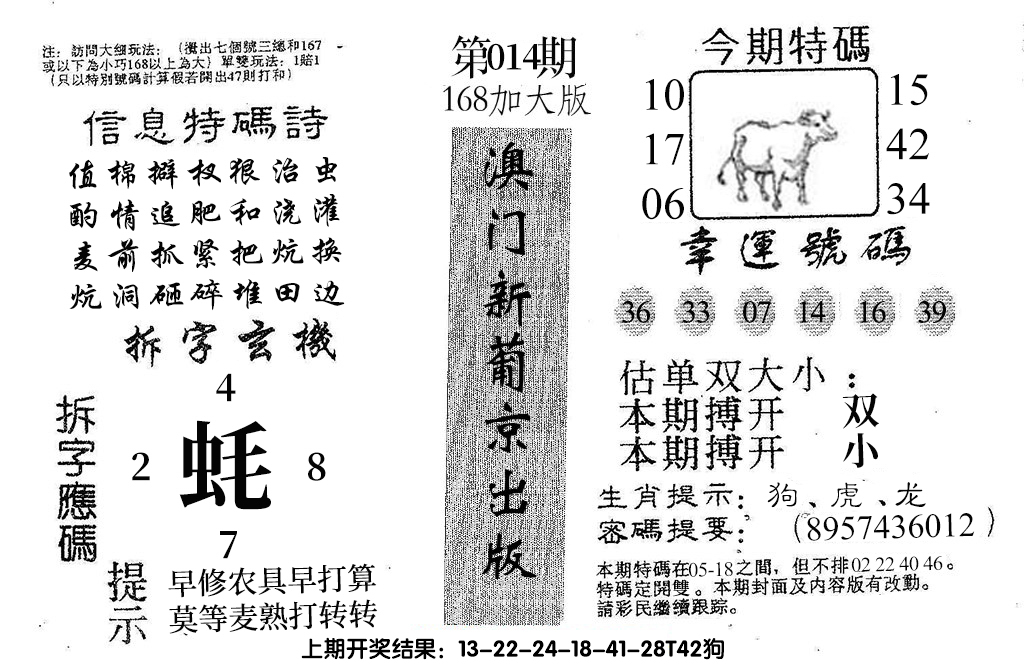 注：訪問大細玩法：（攪出七個號三總和167
或以下為小巧168以上為大）單雙玩法：1賠1
（只以特別號碼計算假若開出47則打和）
信息特碼詩
值棉擗权狠治虫
酌情追肥和浇灌
麦前抓紧把炕换
炕洞砸碎堆田边
拆字玄機
拆字應碼
4
2 蚝 8
7
提示
早修农具早打算
莫等麦熟打转转
第014期
168加大版
澳门新葡京出版
今期特碼
10 15
17 42
06 34
幸運號碼
36 33 07 14 16 39
估单双大小：
本期搏开 双
本期搏开 小
生肖提示：狗、虎、龙
密碼提要：（8957436012）
本期特碼在05-18之間，但不排02 22 40 46。
特碼定開雙。本期封面及内容版有改動。
請彩民繼續跟踪。
上期开奖结果：13-22-24-18-41-28T42狗